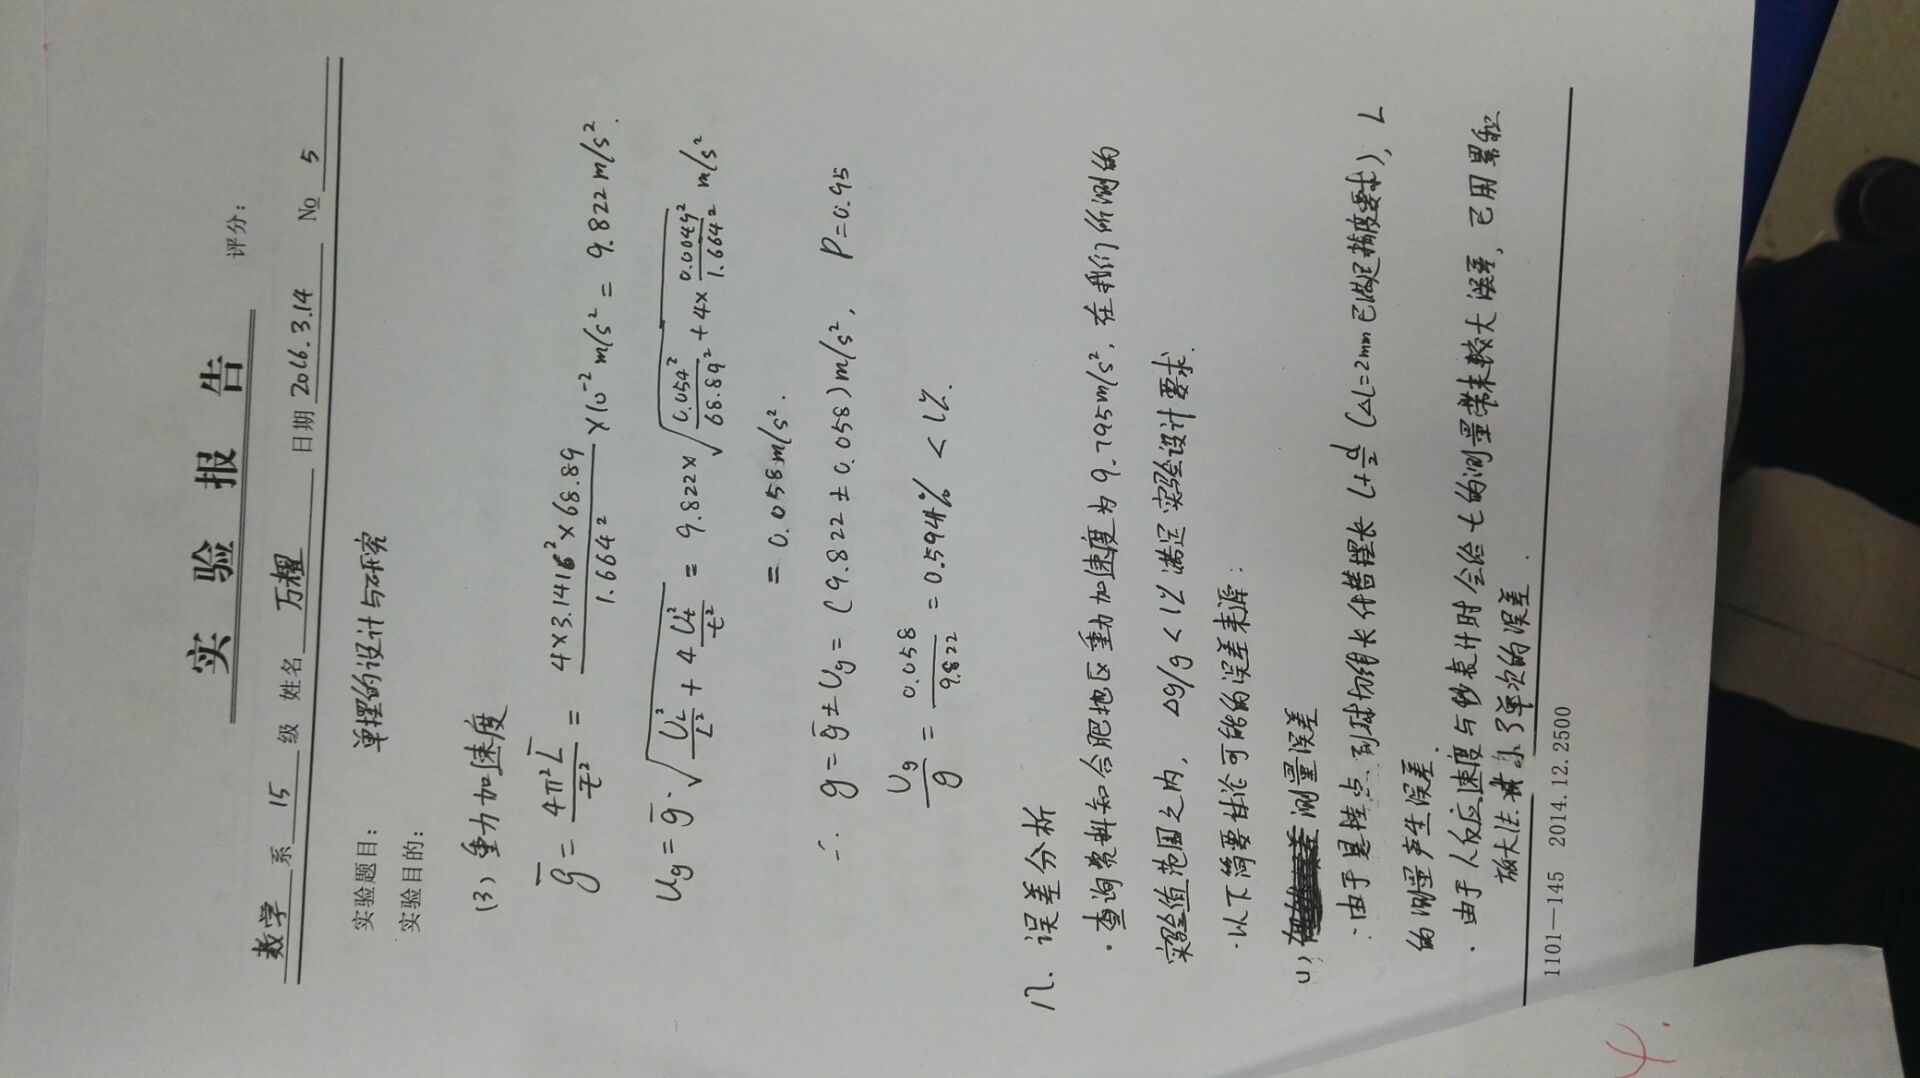 实 验 报 告
评分：
数学 系 15 级 姓名 万耀 日期 2016.3.14 No 5
实验题目： 单摆的设计与研究
实验目的：
(3) 重力加速度
ḡ = 4π²L̄/t̄² = 4×3.1416²×68.89/1.664² ×10⁻² m/s² = 9.822 m/s².
Ug = ḡ·√(U_L²/L̄² + 4U_t²/t̄²) = 9.822×√(0.054²/68.89² + 4×0.0049²/1.664²) m/s²
= 0.058 m/s².
∴ g = ḡ ± Ug = (9.822 ± 0.058) m/s², P=0.95
Ug/g = 0.058/9.822 = 0.594% < 1%.
八. 误差分析
· 查询资料知合肥地区重力加速度为 9.795m/s², 在我们所测的
实验值范围之内, △g/g < 1% 满足实验设计要求.
· 以下简要讨论可能的误差来源:
(1) 测量误差
· 由于悬挂点到球切线长代替摆长 L+d/2 (△L=2mm已满足精度要求), L
的测量产生误差.
· 由于人反应速度与秒表计时会给 t 的测量带来较大误差, 已用累积
放大法减小了单次的误差.
1101—145 2014.12.2500